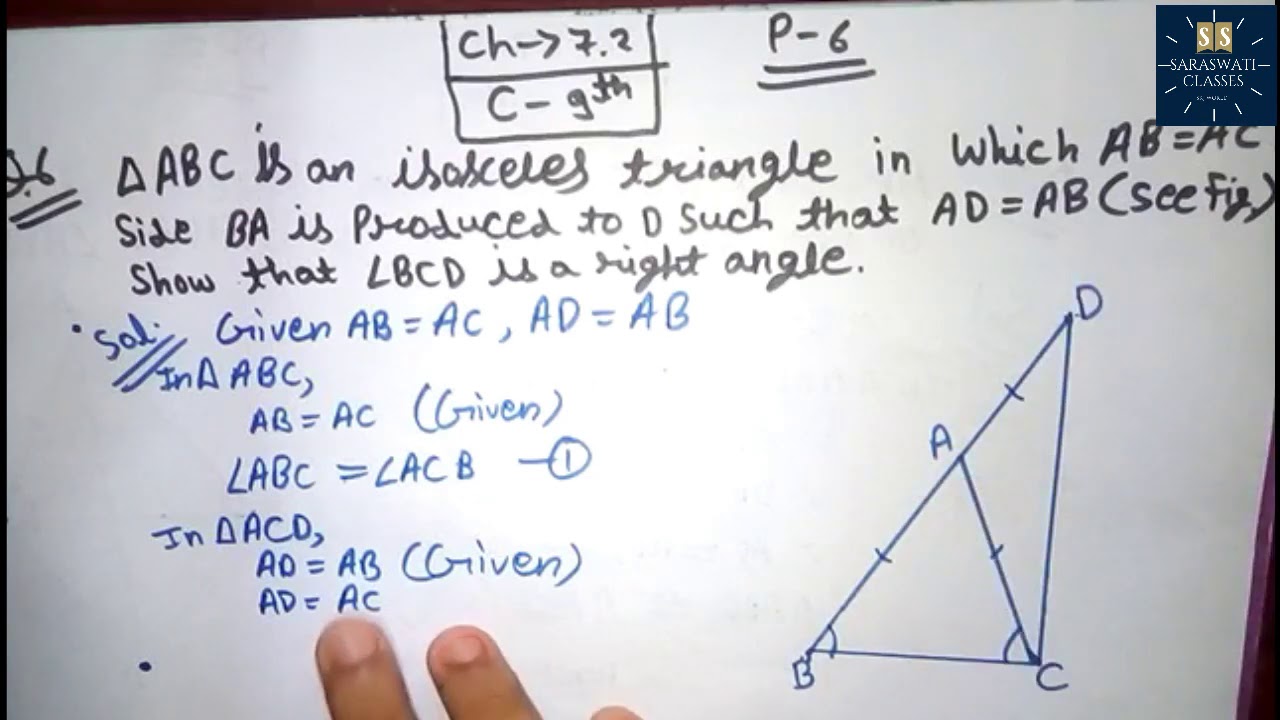 Ch→7.2
C-9th
P-6
SS
SARASWATI
CLASSES
Q.6 △ABC is an isosceles triangle in which AB=AC
Side BA is Produced to D Such that AD=AB (see Fig)
Show that ∠BCD is a right angle.
Sol: Given AB=AC, AD=AB
In △ABC,
AB=AC (Given)
∠ABC=∠ACB —①
In △ACD,
AD=AB (Given)
AD=AC
D
A
B
C